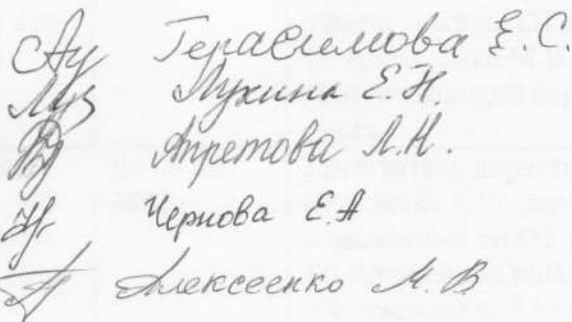 Герасимова Е. С.
Лукина Е. Н
Апретова Л. Н.
Чернова Е. А
Алексеенко М. В